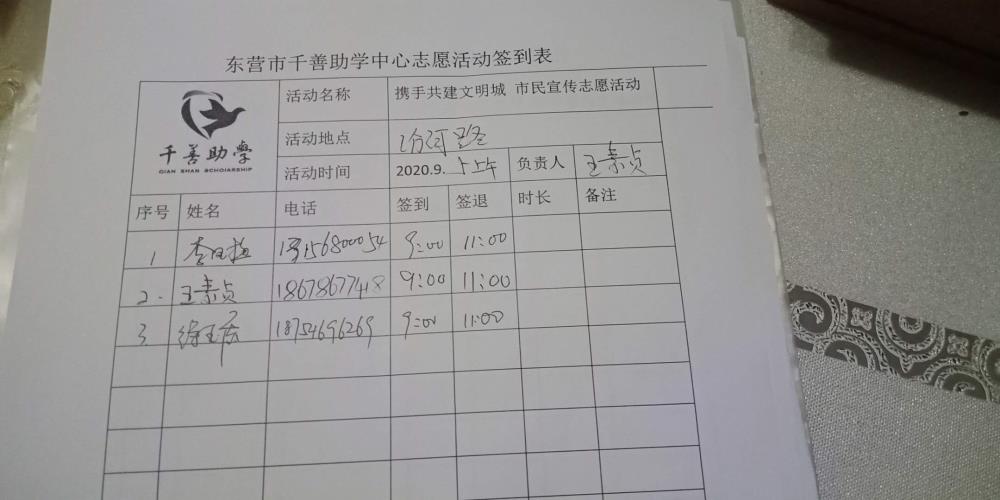 东营市千善助学中心志愿活动签到表
千善助学
QIAN SHAN SCHOIARSHIP
活动名称 携手共建文明城 市民宣传志愿活动
活动地点 汾河路
活动时间 2020.9. 上午 负责人 王素贞
序号 姓名 电话 签到 签退 时长 备注
1 李 9:00 11:00
2. 王素贞 18678677418 9:00 11:00
3. 徐玉 18754696269 9:00 11:00